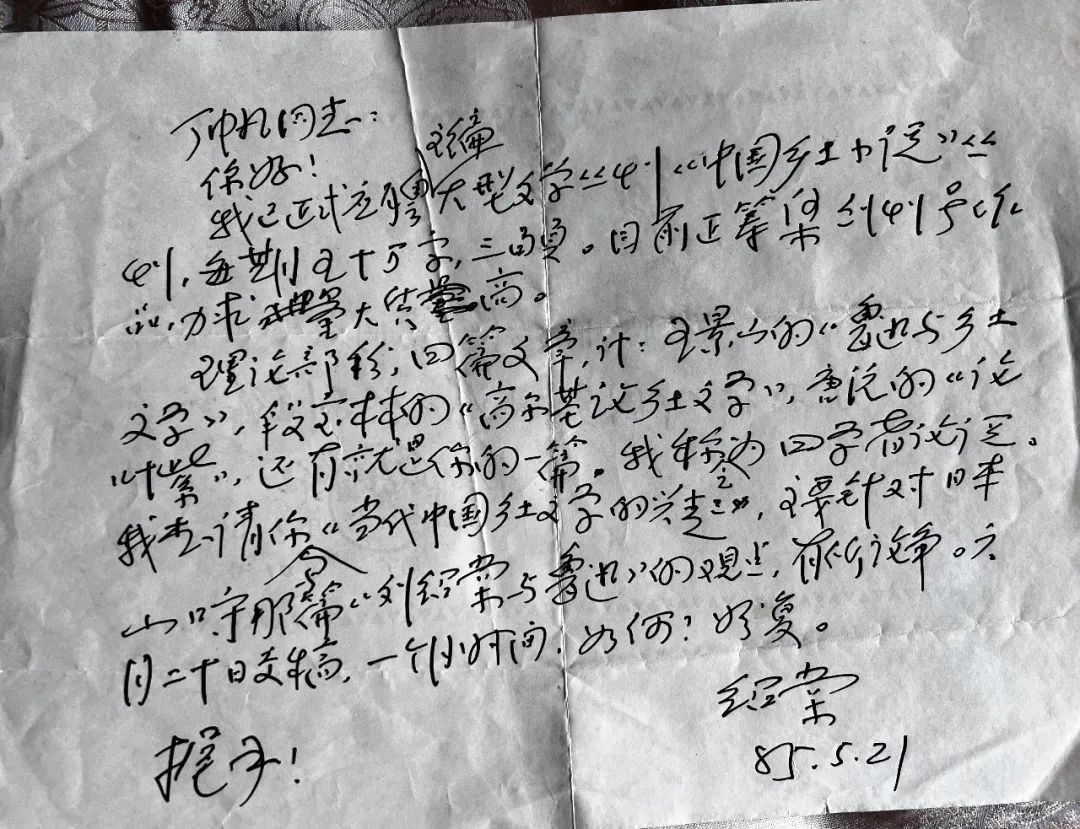 丁帆同志:
你好!
我已正式应聘主编大型文学丛刊《中国乡土小说》丛
刊,每期五十万字,三百页。目前正筹集创刊号作
品,力求量大质高。
理论部分,四篇文章,计:王景山的《鲁迅与乡土
文学》,段宝林的《高尔基论乡土文学》,唐沅的《论
叶紫》,还有就是你的一篇。我称之为四学者论证。
我想请你写《当代中国乡土文学的兴起》,主要针对日本
山口守那篇《刘绍棠与鲁迅》的观点,有所论争。六
月二十日交稿,一个月时间,如何?好复。
绍棠
握手!
85.5.21